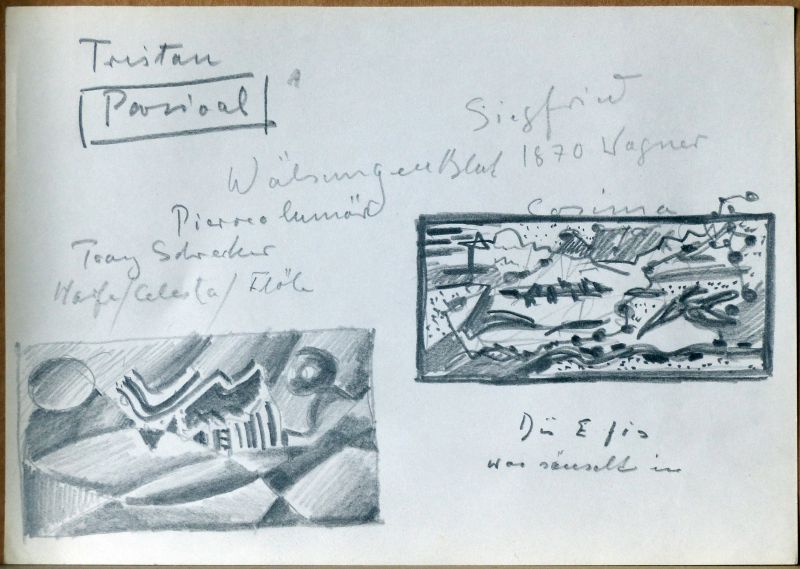 Tristan
Parsival
Siegfried
Wälsungenblut 1870 Wagner
Cosima
Pierrot lunaire
Franz Schreker
Harfe/Celesta/Flöte
Dis E fis
was säuselt in